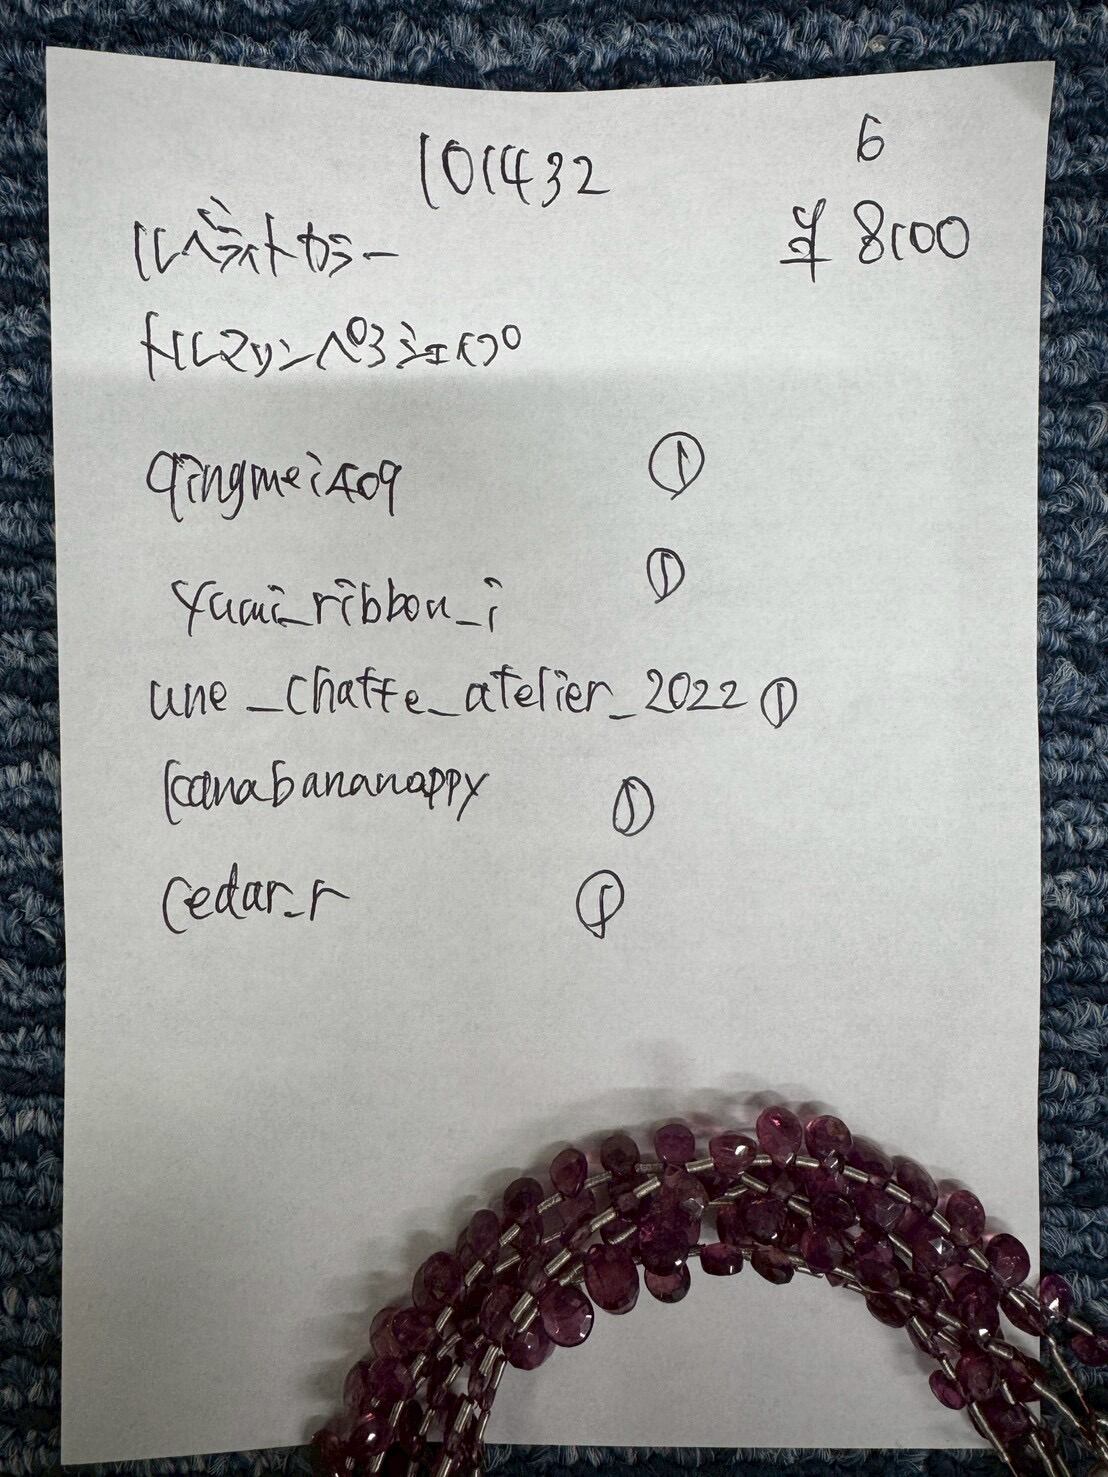 101432 6
ルベライトカラー ¥8100
トルマリンペアシェイプ
qingmei409 ①
yumi_ribbon_i ①
une_chatte_atelier_2022 ①
kanabananappy ①
cedar_r ①